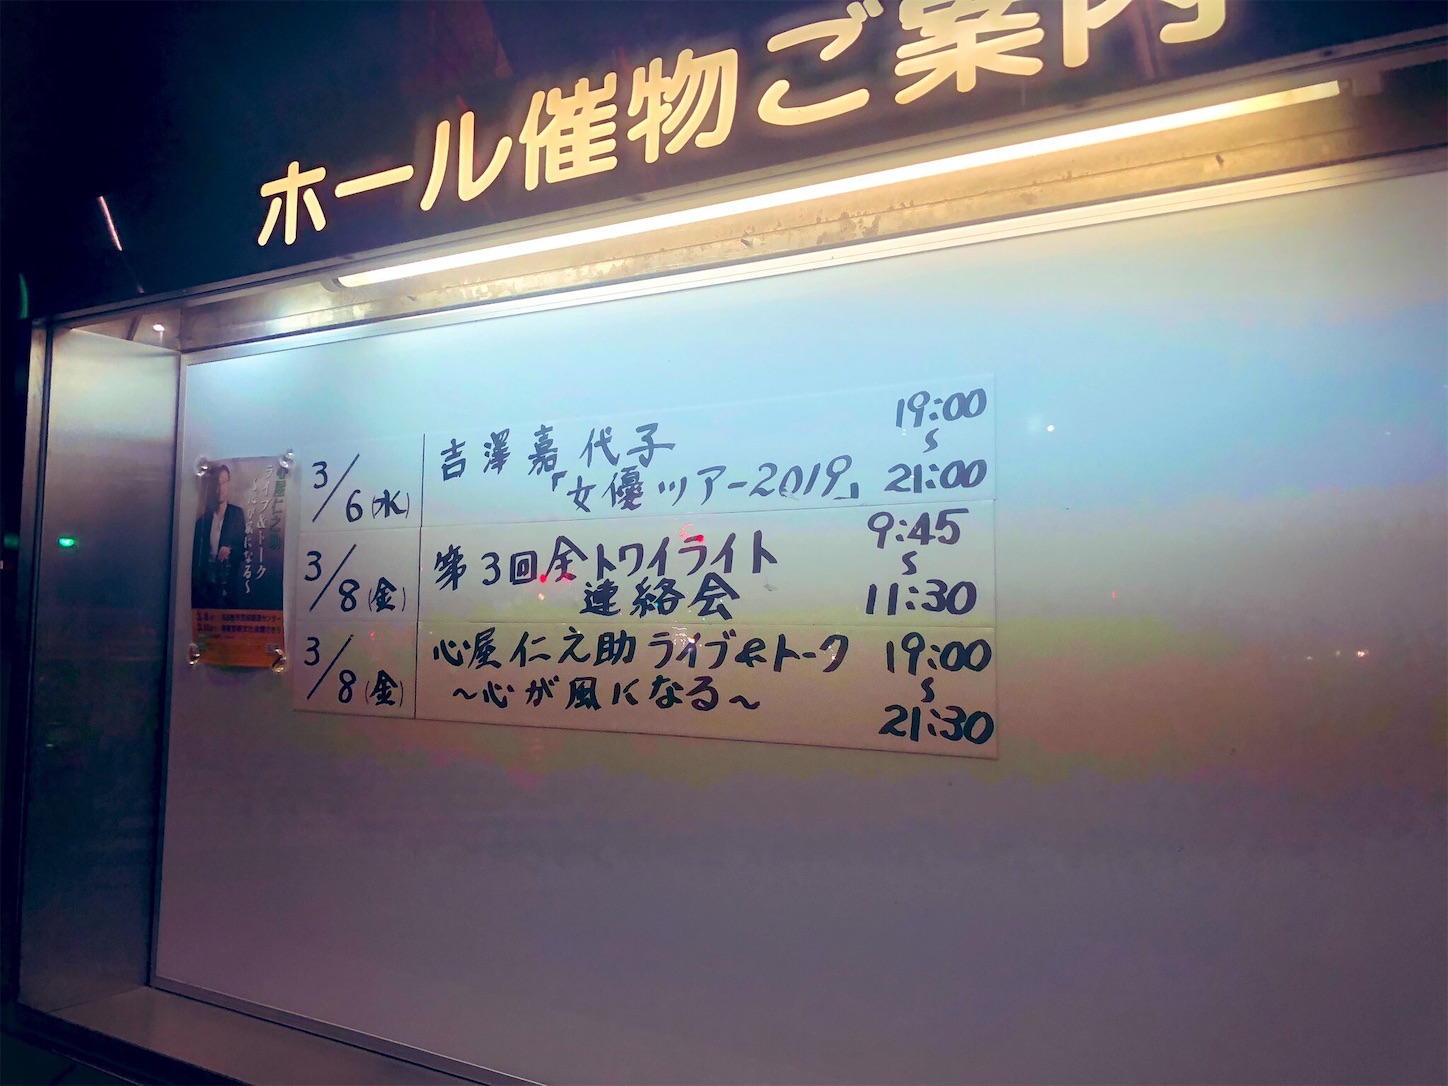 ホール催物ご案内
3/6(水)
吉澤嘉代子
「女優ツアー2019」
19:00
~
21:00
3/8(金)
第3回全トワイライト
連絡会
9:45
~
11:30
3/8(金)
心屋仁之助ライブ&トーク
~心が風になる~
19:00
~
21:30
心屋仁之助
ライブ&トーク
~心が風になる~